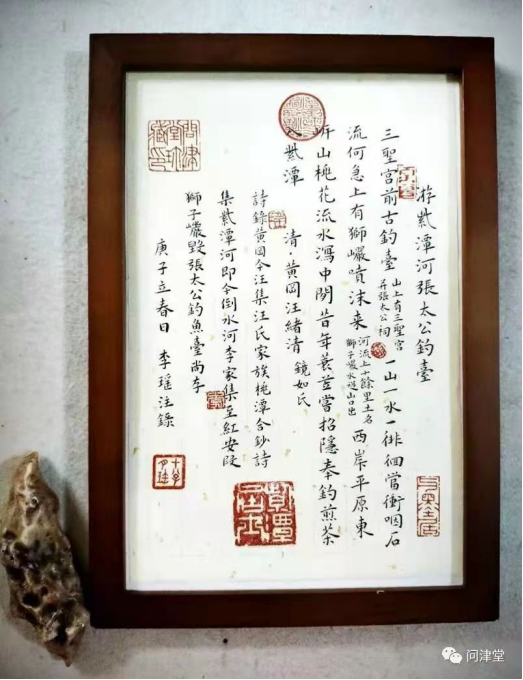 游紫潭河張太公釣臺
三聖宮前古釣臺山上有三聖宮并張太公祠一山一水一徘徊當衝咽石
流何急上有獅巖噴沫来河流上十餘里土名獅子巖水從山口出西岸平原東
岸山桃花流水瀉中間昔年蓑笠嘗招隱奉釣煎茶
入紫潭
清·黄岡汪緒清鏡如氏
詩錄黄岡今汪集汪氏家族桃潭合鈔詩
集紫潭河即今倒水河李家集至紅安段
獅子巖毀張太公釣魚臺尚存
庚子立春日 李瑶注錄
問津堂